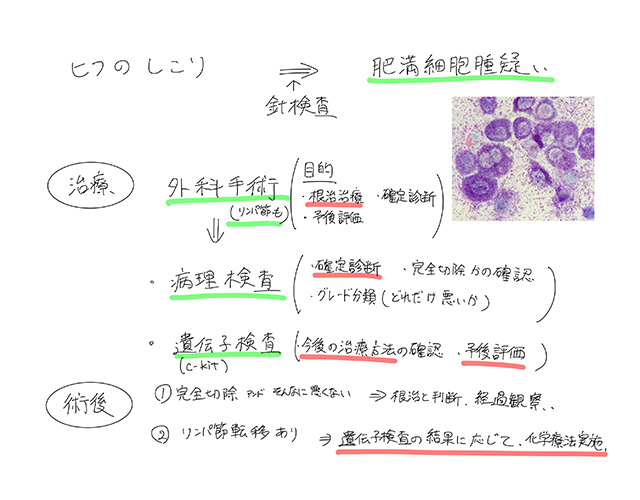 ヒフのしこり ⇒ 肥満細胞腫疑い
↑
針検査
治療
外科手術
(リンパ節も)
目的
・根治治療 ・確定診断
・予後評価
⇓
・病理検査
・確定診断 ・完全切除かの確認
・グレード分類(どれだけ悪いか)
・遺伝子検査
(c-kit)
・今後の治療方法の確認 ・予後評価
術後
① 完全切除 アンド そんなに悪くない ⇒ 根治と判断、経過観察、、
② リンパ節転移あり ⇒ 遺伝子検査の結果に応じて、化学療法実施。